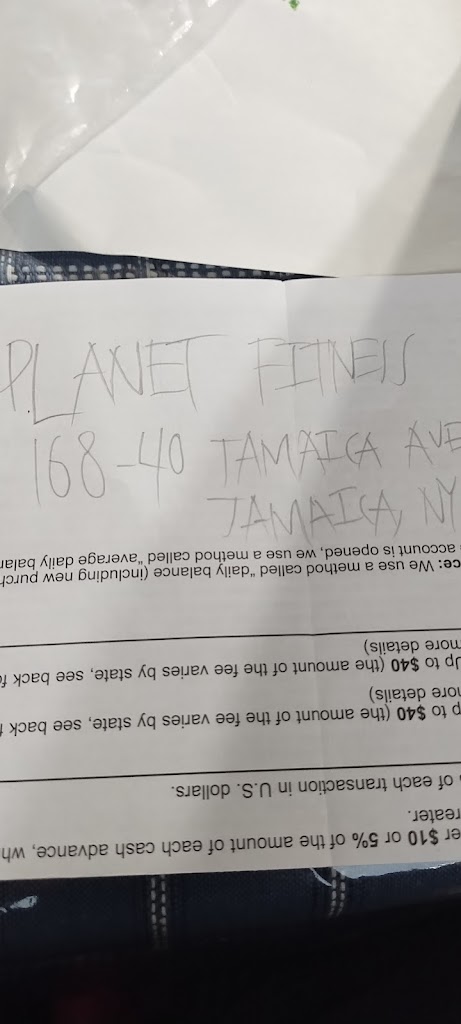 PLANET FITNESS
168-40 JAMAICA AVE
JAMAICA, NY
er $10 or 5% of the amount of each cash advance, wh
reater.
of each transaction in U.S. dollars.
p to $40 (the amount of the fee varies by state, see back f
nore details)
Up to $40 (the amount of the fee varies by state, see back fo
more details)
ce: We use a method called "daily balance (including new purch
account is opened, we use a method called "average daily balan